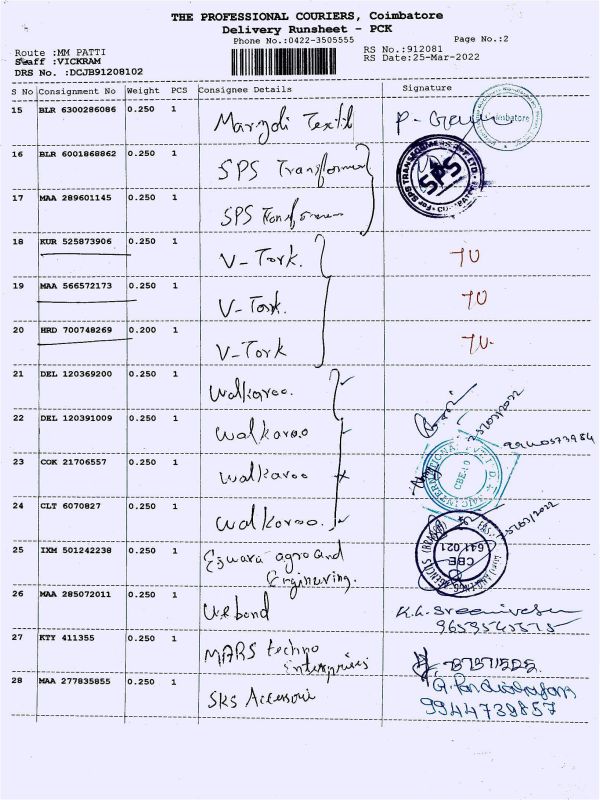 THE PROFESSIONAL COURIERS, Coimbatore
Delivery Runsheet - PCK
Phone No:0422-3505555 Page No.:2
Route :MM PATTI RS No.:912081
Staff :VICKRAM RS Date:25-Mar-2022
DRS No. :DCJB91208102
S No Consignment No Weight PCS Consignee Details Signature
15 BLR 6300286086 0.250 1 Textil
16 BLR 6001868862 0.250 1 SPS Transformer
17 MAA 289601145 0.250 1 SPS
18 KUR 525873906 0.250 1 V-Tork.
19 MAA 566572173 0.250 1 V-Tork.
20 HRD 700748269 0.200 1 V-Tork
21 DEL 120369200 0.250 1 walkaroo.
22 DEL 120391009 0.250 1 walkaroo
23 COK 21706557 0.250 1 walkaroo
24 CLT 6070827 0.250 1 walkaroo.
25 IXM 501242238 0.250 1 Eswara agro and
Engineering.
26 MAA 285072011 0.250 1
27 KTY 411355 0.250 1 MARS techno
enterprises
28 MAA 277835855 0.250 1 SKS
9944739857
SPS
CBE
641 021